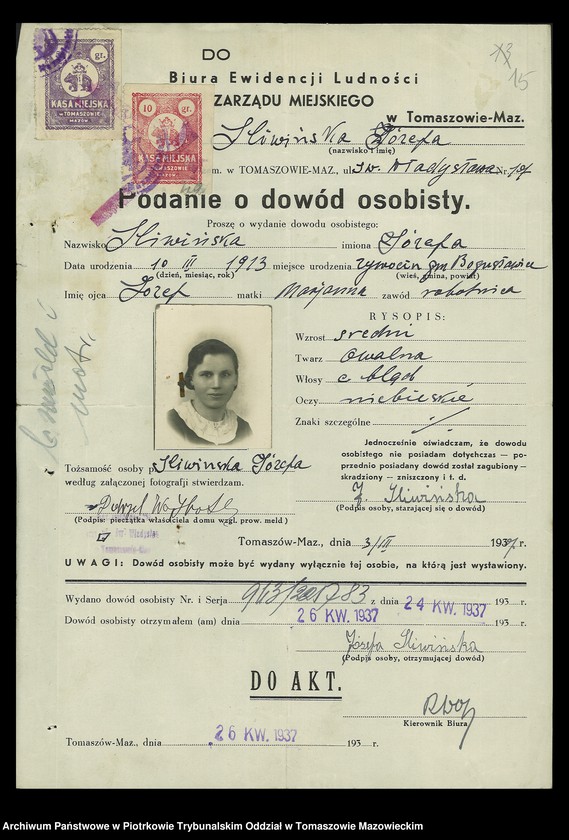 DO
Biura Ewidencji Ludności
ZARZĄDU MIEJSKIEGO
w Tomaszowie-Maz.
15
gr.
KASA MIEJSKA
w TOMASZOWIE
MAZOW.
10 gr.
KASA MIEJSKA
Śliwińska Józefa
(nazwisko i imię)
m. w TOMASZOWIE-MAZ., ul. Św. Władysława Nr.
Podanie o dowód osobisty.
Proszę o wydanie dowodu osobistego:
Nazwisko Śliwińska imiona Józefa
Data urodzenia 10 III 1913 miejsce urodzenia Żywocin gm Bogusławice
(dzień, miesiąc, rok) (wieś, gmina, powiat)
Imię ojca Józef matki Marjanna zawód robotnica
RYSOPIS:
Wzrost średni
Twarz owalna
Włosy c. bląd
Oczy niebieskie
Znaki szczególne
Jednocześnie oświadczam, że dowodu
osobistego nie posiadam dotychczas — po-
przednio posiadany dowód został zagubiony -
skradziony - zniszczony i t. d.
Tożsamość osoby p. Śliwinska Józefa
według załączonej fotografji stwierdzam.
J. Śliwińska
(Podpis osoby, starającej się o dowód)
(Podpis: pieczątka właściciela domu wzgl. prow. meld.)
Tomaszów-Maz., dnia 3/III 1937 r.
UWAGI: Dowód osobisty może być wydany wyłącznie tej osobie, na którą jest wystawiony.
Wydano dowód osobisty Nr. i Serja z dnia 24 KW. 1937 193 r.
Dowód osobisty otrzymałem (am) dnia 26 KW. 1937 193 r.
Józefa Śliwińska
(Podpis osoby, otrzymującej dowód)
DO AKT.
Kierownik Biura
Tomaszów-Maz., dnia 26 KW. 1937 193 r.
Archiwum Państwowe w Piotrkowie Trybunalskim Oddział w Tomaszowie Mazowieckim